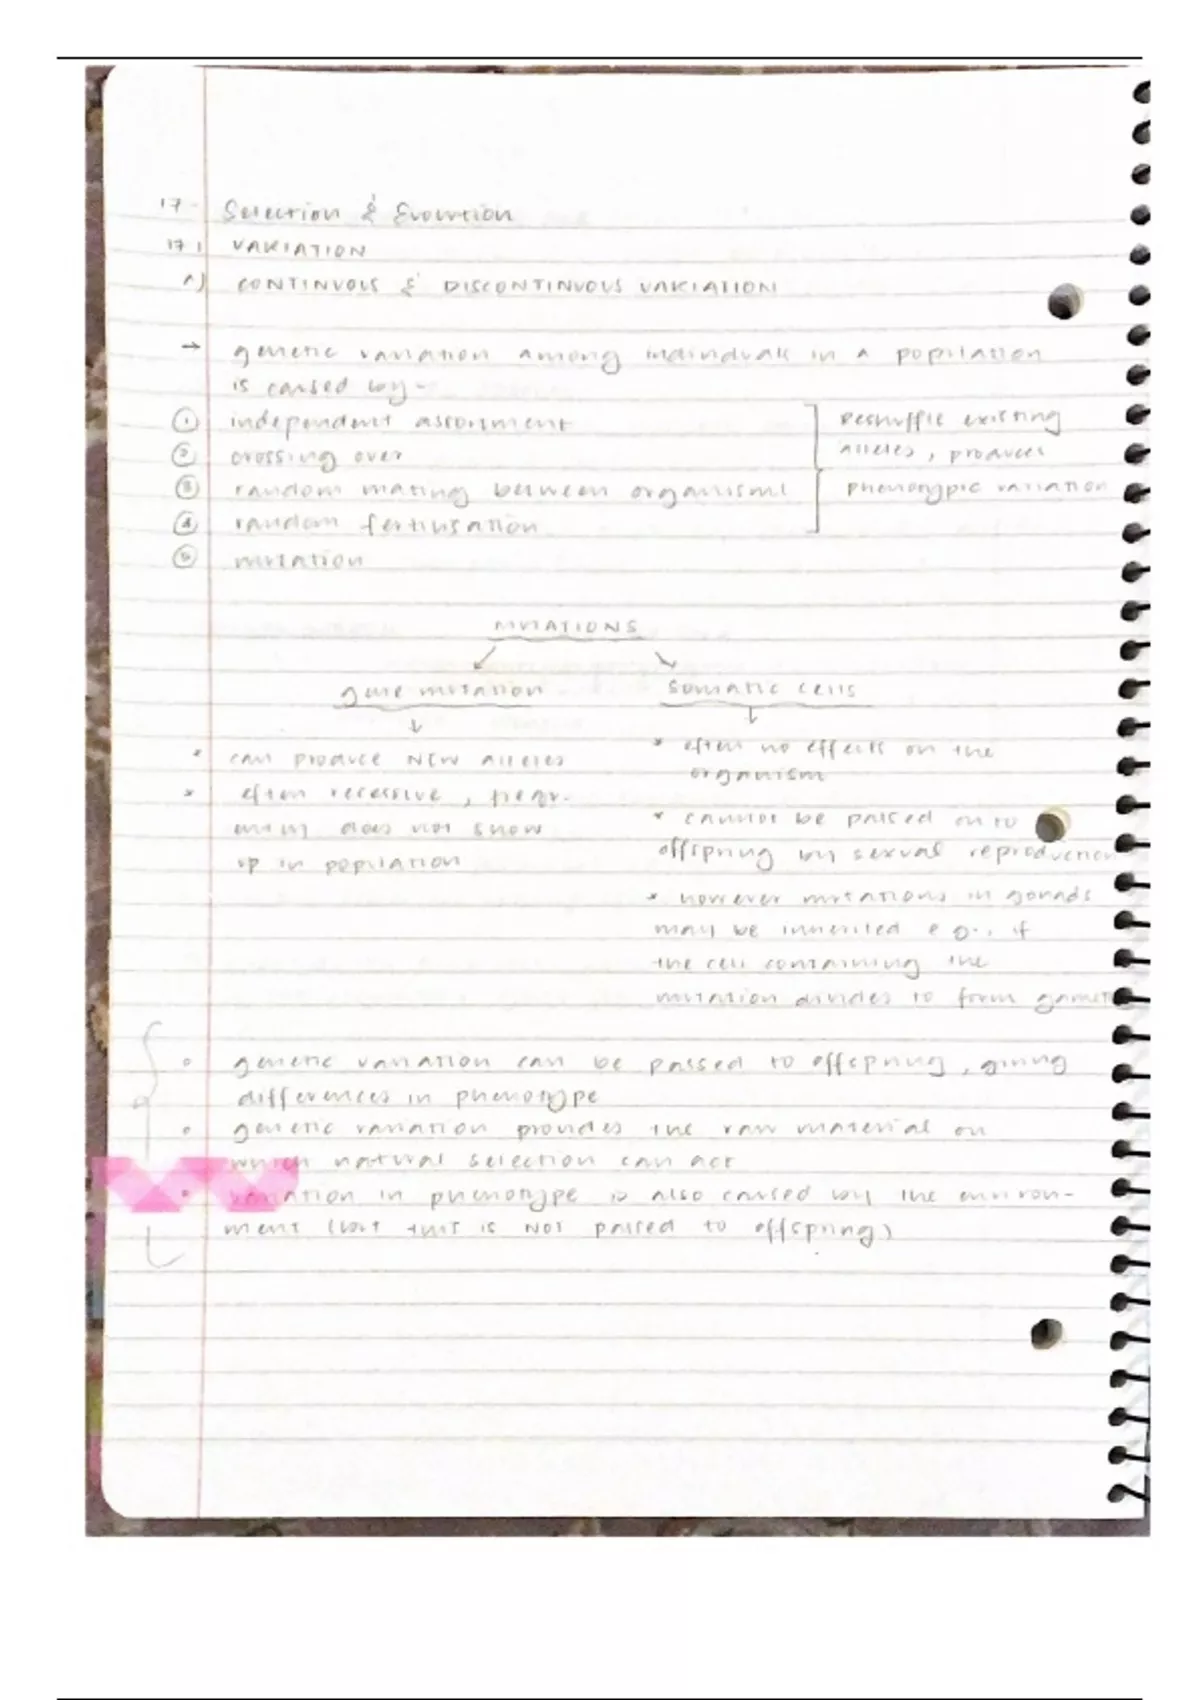 17 - Selection & Evolution
17.1 VARIATION
A) CONTINUOUS & DISCONTINUOUS VARIATION
→ genetic variation among individuals in a population
is caused by -
① independent assortment
② crossing over
③ random mating between organisms
④ random fertilisation
⑤ mutation
Reshuffle existing
alleles, produces
phenotypic variation
MUTATIONS
gene mutation
* can produce NEW alleles
* often recessive, freq.
many does not show
up in population
somatic cells
* often no effects on the
organism
* cannot be passed on to
offspring by sexual reproduction
* however mutations in gonads
may be inherited e.g., if
the cell containing the
mutation divides to form
o genetic variation can be passed to offspring, giving
differences in phenotype
o genetic variation provides the raw material on
which natural selection can act
o variation in phenotype is also caused by the environ-
ment (but this is NOT passed to offspring)